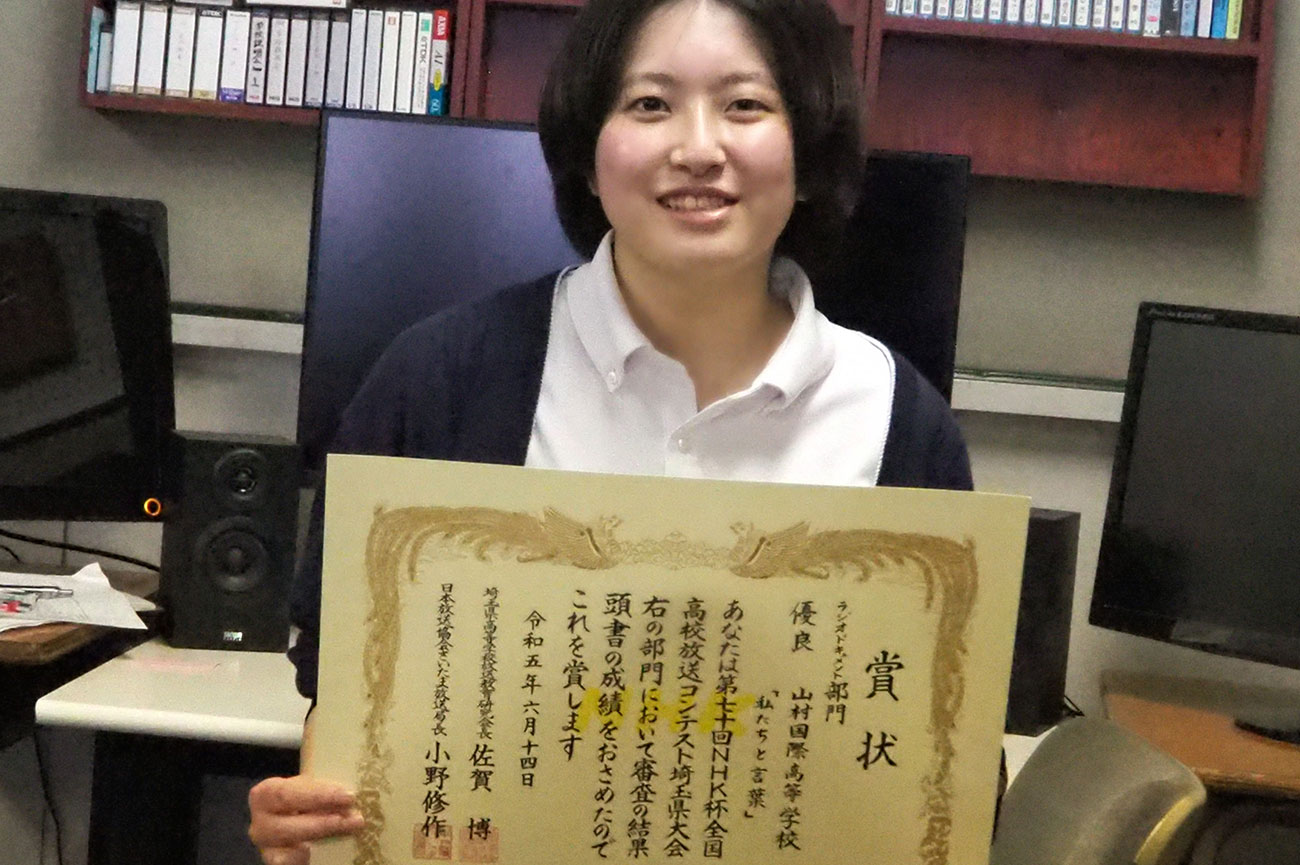 賞状
ラジオドキュメント部門
優良 山村国際高等学校
「私たちと言葉」
あなたは第七十回NHK杯全国
高校放送コンテスト埼玉県大会
右の部門において審査の結果
頭書の成績をおさめたので
これを賞します
令和五年六月十四日
埼玉県高等学校放送教育研究会長 佐賀 博
日本放送協会さいたま放送局長 小野修作
TDK
TDK
AXIA